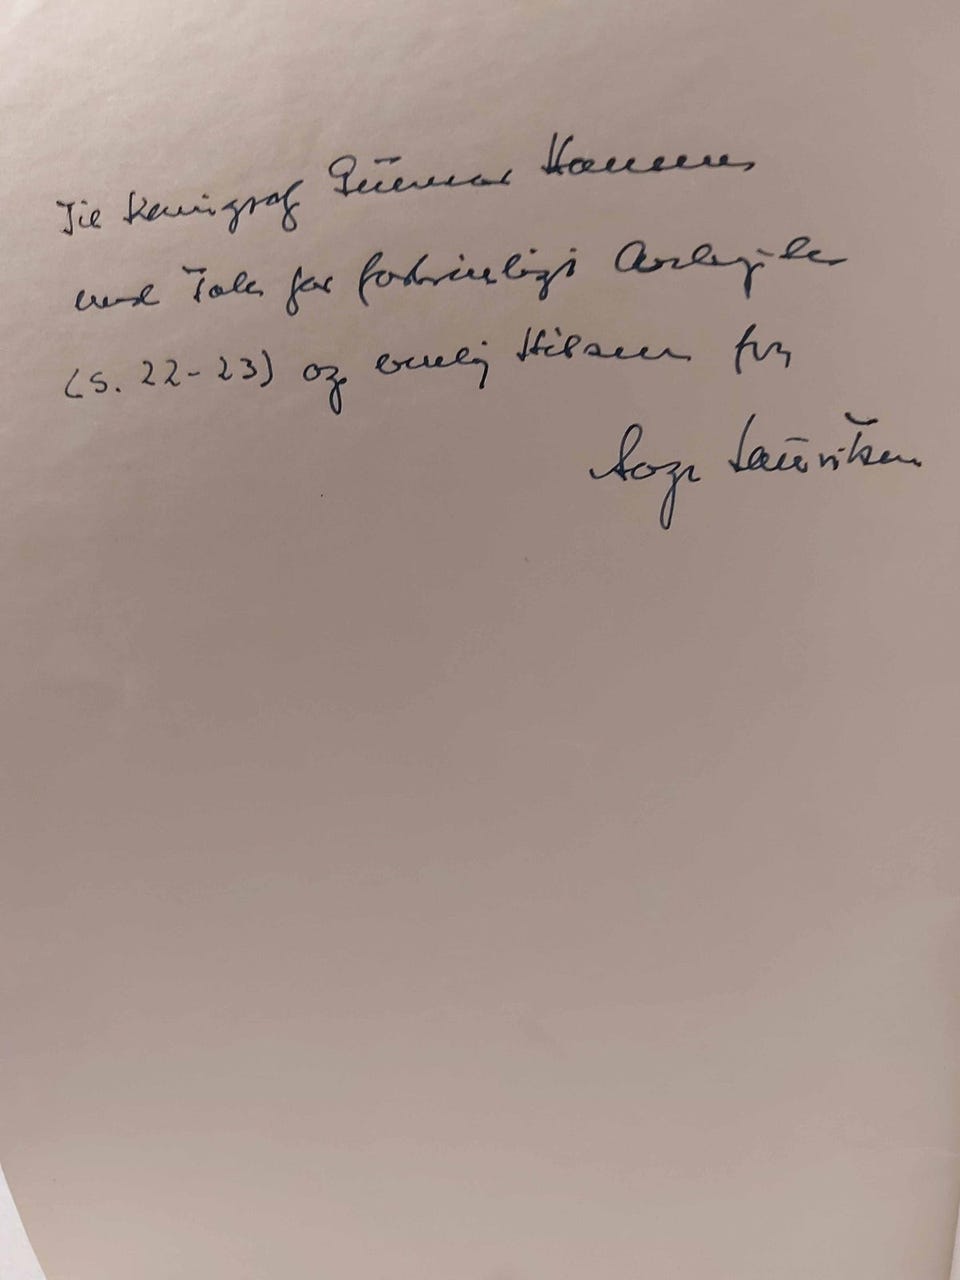 Til Kemigraf Gunnar Hansen
med Tak for fortrinlige
(S. 22-23) og venlig Hilsen fra
Aage Lauritsen